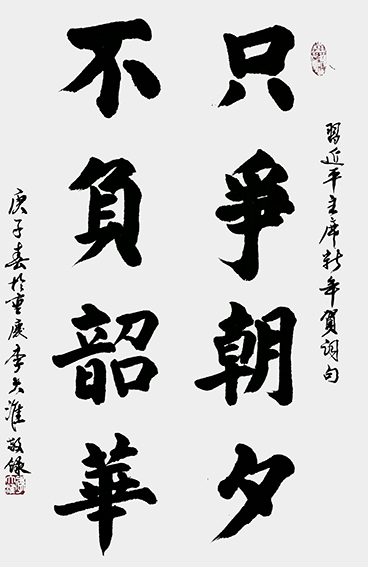 習近平主席新年賀詞句
只爭朝夕
不負韶華
庚子春於重慶李淮敬錄